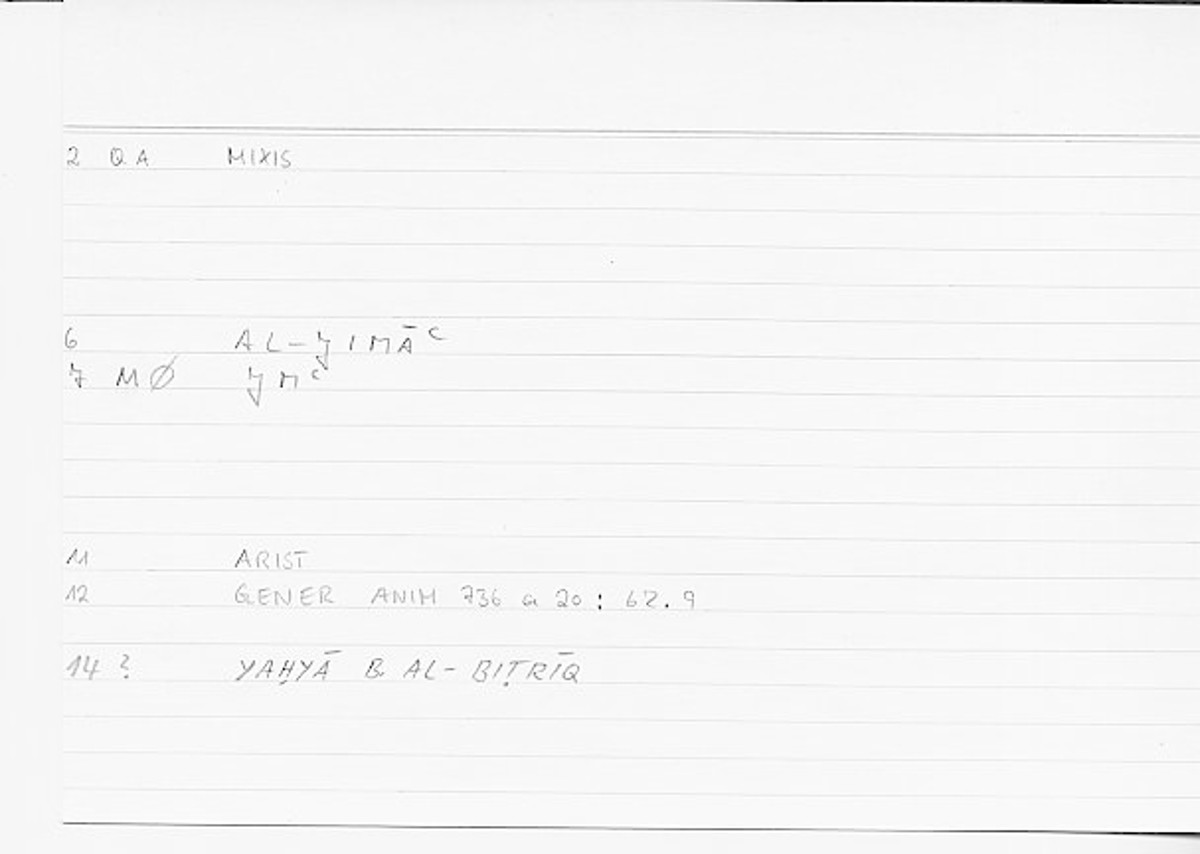 2 QA MIXIS
6 AL-ǧIMĀʿ
7 MØ ǧMʿ
11 ARIST
12 GENER ANIM 736 a 20 : 62.9
14 ? YAḤYĀ B. AL-BIṬRĪQ